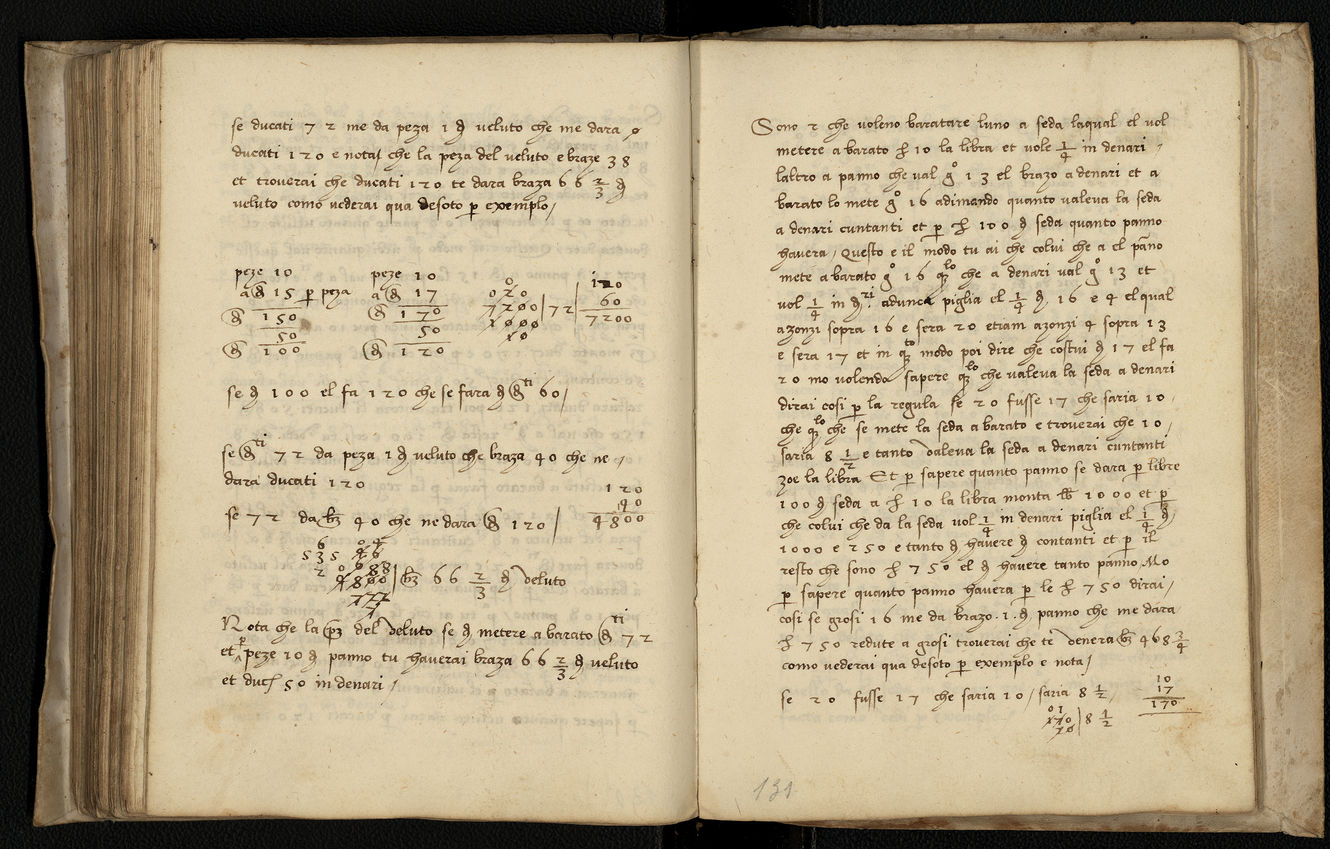 se ducati 72 me da peza 1 đ veluto che me dara
ducati 120 e nota/ che la peza del veluto e braze 38
et troverai che ducati 120 te dara braza 66 2/3 đ
veluto como vederai qua desoto p exemplo/
peze 10 peze 10
a 15 p peza a 17
150 170
50 50
100 120
120
60
7200
7200 | 72
se đ 100 el fa 120 che se fara đ ti 60/
se ti 72 da peza 1 đ veluto che braza 40 che ne
dara ducati 120
120
40
4800
se 72 da bz 40 che ne dara 120/
4800 | bz 66 2/3 đ veluto
Nota che la pz del veluto se đ metere a barato ti 72
et p peze 10 đ panno tu haverai braza 66 2/3 đ veluto
et duc 50 in denari/
Sono 2 che voleno baratare luno a seda laqual el vol
metere a barato 10 la libra et vole 1/4 in denari
laltro a panno che val go 13 el brazo a denari et a
barato lo mete go 16 adimando quanto valeva la seda
a denari cuntanti et p 100 đ seda quanto panno
havera/ Questo e il modo tu ai che colui che a el pano
mete a barato go 16 qlo che a denari val go 13 et
vol 1/4 in đri adunca piglia el 1/4 đ 16 e 4 el qual
azonzi sopra 16 e sera 20 etiam azonzi 4 sopra 13
e sera 17 et in qto modo poi dire che costui đ 17 el fa
20 mo volendo sapere qlo che valeva la seda a denari
dirai cosi p la regula se 20 fusse 17 che saria 10
che qlo che se mete la seda a barato e troverai che 10/
saria 8 1/2 e tanto valeva la seda a denari cuntanti
zoe la libra Et p sapere quanto panno se dara p libre
100 đ seda a 10 la libra monta 1000 et p
che colui che da la seda vol 1/4 in denari piglia el 1/4 đ
1000 e 250 e tanto đ havere đ contanti et p il
resto che sono 750 el đ havere tanto panno Mo
p sapere quanto panno havera p le 750 dirai/
cosi se grosi 16 me da brazo .1. đ panno che me dara
750 redute a grosi troverai che te venera bz 468 3/4
como vederai qua desoto p exemplo e nota/
se 20 fusse 17 che saria 10/ saria 8 1/2
10
17
170
170 | 8 1/2
20
131